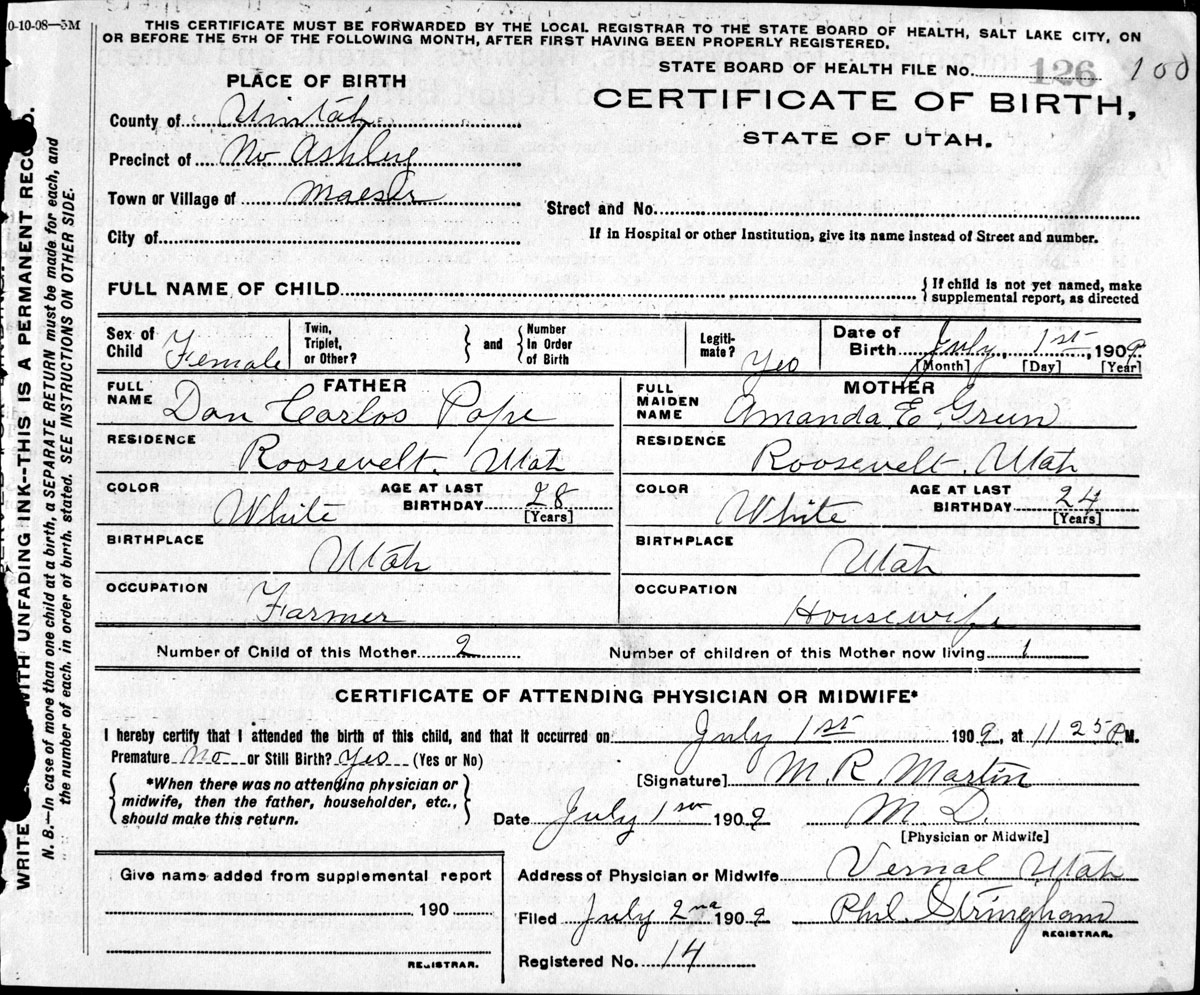 0-10-08—5M
THIS CERTIFICATE MUST BE FORWARDED BY THE LOCAL REGISTRAR TO THE STATE BOARD OF HEALTH, SALT LAKE CITY, ON
OR BEFORE THE 5TH OF THE FOLLOWING MONTH, AFTER FIRST HAVING BEEN PROPERLY REGISTERED.
STATE BOARD OF HEALTH FILE No. 126 100
PLACE OF BIRTH
CERTIFICATE OF BIRTH,
STATE OF UTAH.
County of Uintah
Precinct of No Ashley
Town or Village of Maeser
Street and No.
City of
If in Hospital or other Institution, give its name instead of Street and number.
FULL NAME OF CHILD
{ If child is not yet named, make
supplemental report, as directed
Sex of Child Female
Twin, Triplet, or Other? } and { Number In Order of Birth
Legiti- mate? Yes
Date of Birth July, 1st, 1909
[Month] [Day] [Year]
FATHER
FULL NAME Don Carlos Pope
RESIDENCE Roosevelt, Utah
COLOR White AGE AT LAST BIRTHDAY 28 [Years]
BIRTHPLACE Utah
OCCUPATION Farmer
MOTHER
FULL MAIDEN NAME Amanda E Green
RESIDENCE Roosevelt, Utah
COLOR White AGE AT LAST BIRTHDAY 24 [Years]
BIRTHPLACE Utah
OCCUPATION Housewife
Number of Child of this Mother 2 Number of children of this Mother now living 1
CERTIFICATE OF ATTENDING PHYSICIAN OR MIDWIFE*
I hereby certify that I attended the birth of this child, and that it occurred on July 1st 1909, at 11 25 P M.
Premature No or Still Birth? Yes (Yes or No)
[Signature] M. R. Martin
{ *When there was no attending physician or
midwife, then the father, householder, etc.,
should make this return. }
Date July 1st 1909 M. D.
[Physician or Midwife]
Give name added from supplemental report
190
REGISTRAR.
Address of Physician or Midwife Vernal Utah
Filed July 2nd 1909 Phil. Stringham
REGISTRAR.
Registered No. 14
WRITE WITH UNFADING INK--THIS IS A PERMANENT RECORD.
N. B.—In case of more than one child at a birth, a SEPARATE RETURN must be made for each, and
the number of each, in order of birth, stated. SEE INSTRUCTIONS ON OTHER SIDE.